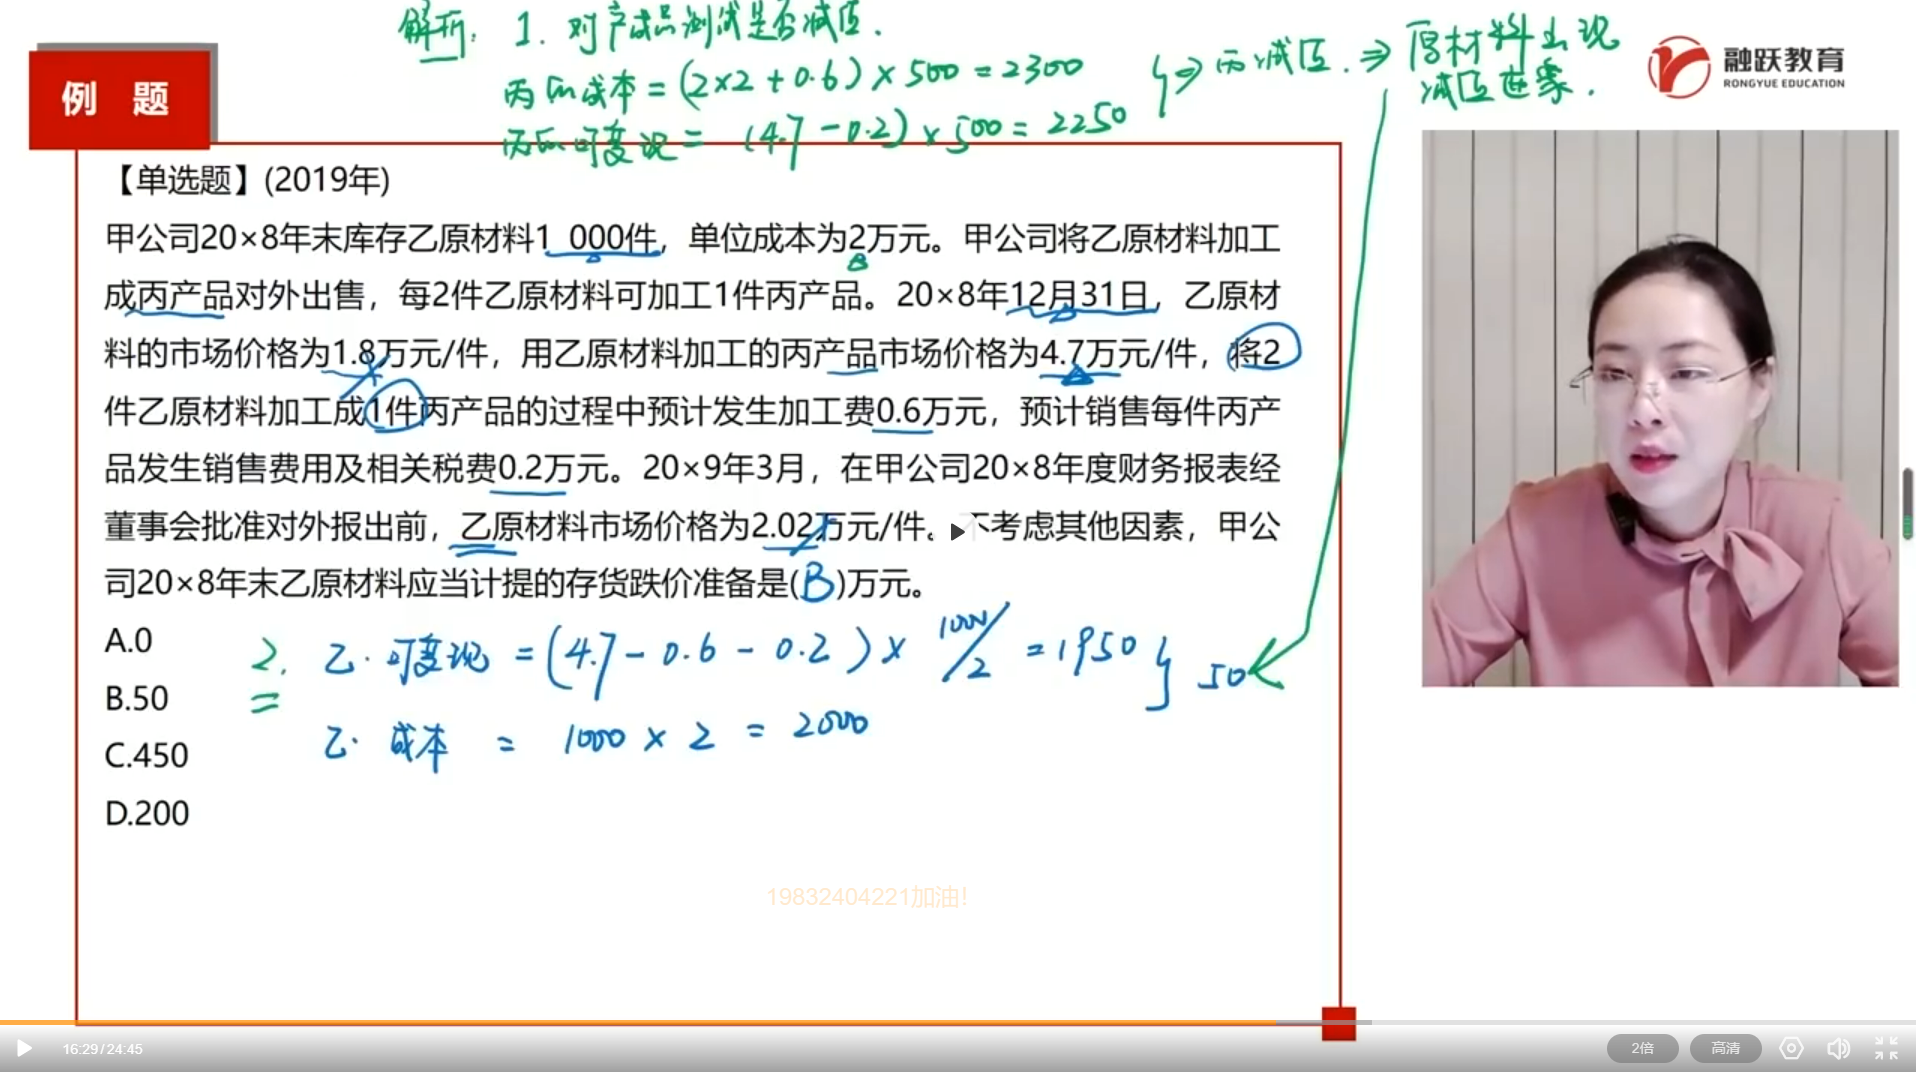 解析：1. 对产成品测试是否减值.
丙的成本=(2×2+0.6)×500=2300
丙的可变现=(4.7-0.2)×500=2250
}⇒丙减值.⇒原材料出现
减值迹象.
融跃教育
RONGYUE EDUCATION
例 题
【单选题】(2019年)
甲公司20×8年末库存乙原材料1 000件，单位成本为2万元。甲公司将乙原材料加工
成丙产品对外出售，每2件乙原材料可加工1件丙产品。20×8年12月31日，乙原材
料的市场价格为1.8万元/件，用乙原材料加工的丙产品市场价格为4.7万元/件，将2
件乙原材料加工成1件丙产品的过程中预计发生加工费0.6万元，预计销售每件丙产
品发生销售费用及相关税费0.2万元。20×9年3月，在甲公司20×8年度财务报表经
董事会批准对外报出前，乙原材料市场价格为2.02万元/件。不考虑其他因素，甲公
司20×8年末乙原材料应当计提的存货跌价准备是(B)万元。
A.0
B.50
C.450
D.200
2. 乙.可变现=(4.7-0.6-0.2)×1000/2=1950}50
乙.成本=1000×2=2000
19832404221加油!
16:29/24:45
2倍
高清